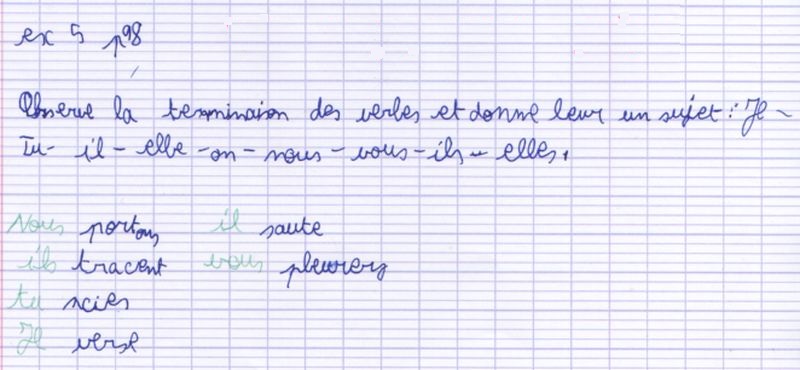 ex 5 p98
Observe la terminaison des verbes et donne leur un sujet : Je -
Tu - il - elle - on - nous - vous - ils - elles.
Nous portons il saute
ils tracent vous pleurez
tu scies
Je verse